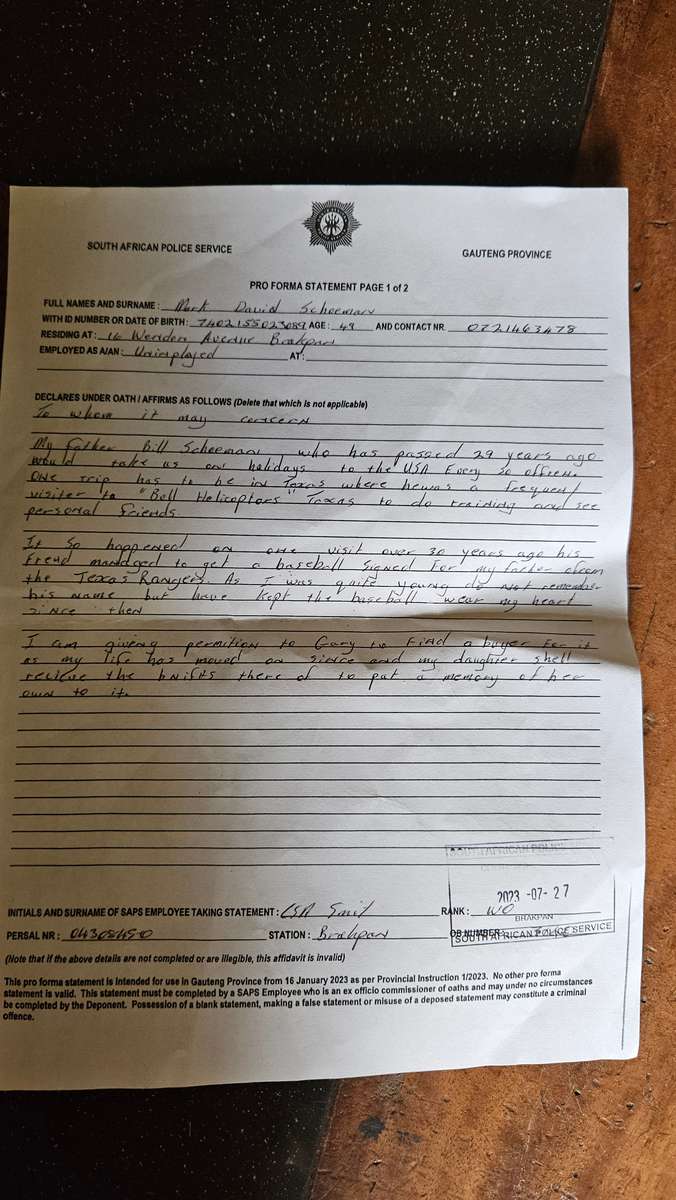 SOUTH AFRICAN POLICE SERVICE
GAUTENG PROVINCE
PRO FORMA STATEMENT PAGE 1 of 2
FULL NAMES AND SURNAME : Mark David Scheeman
WITH ID NUMBER OR DATE OF BIRTH : 7402155023089 AGE : 49 AND CONTACT NR. 0721463478
RESIDING AT : 16 Wenden Avenue Brakpan
EMPLOYED AS A/AN : Unimployed AT :
DECLARES UNDER OATH / AFFIRMS AS FOLLOWS (Delete that which is not applicable)
To whom it may concern
My father Bill Scheeman who has passed 29 years ago
would take us on holidays to the USA Every so often.
One trip has to be in Texas where he was a frequent
visiter to "Bell Helicoptors" Texas to do training and see
personal friends
It so happened on one visit over 30 years ago his
freud managed to get a baseball signed for my father from
the Texas Rangers. As I was quite young do not remember
his name but have kept the baseball wear my heart
since then
I am giving permition to Gary to find a buyer for it
as my life has moved on since and my daughter shell
recieve the there of to put a memory of her
own to it.
SOUTH AFRICAN POLICE
2023 -07- 27
INITIALS AND SURNAME OF SAPS EMPLOYEE TAKING STATEMENT : Smit RANK : WO
BRAKPAN
PERSAL NR : STATION : Brakpan OB NUMBER
SOUTH AFRICAN POLICE SERVICE
(Note that if the above details are not completed or are illegible, this affidavit is invalid)
This pro forma statement is intended for use in Gauteng Province from 16 January 2023 as per Provincial Instruction 1/2023. No other pro forma
statement is valid. This statement must be completed by a SAPS Employee who is an ex officio commissioner of oaths and may under no circumstances
be completed by the Deponent. Possession of a blank statement, making a false statement or misuse of a deposed statement may constitute a criminal
offence.